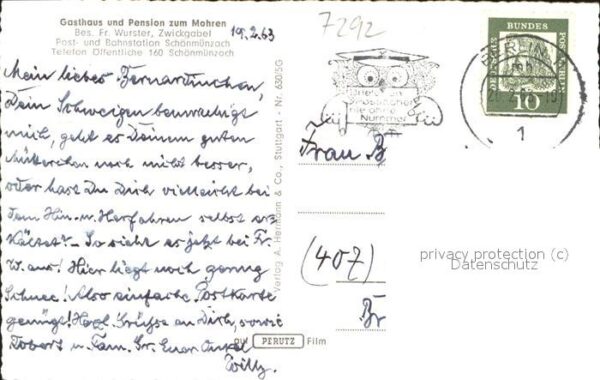 Gasthaus und Pension zum Mohren
Bes. Fr. Wurster, Zwickgabel
Post- und Bahnstation Schönmünzach
Telefon Öffentliche 160 Schönmünzach
19.2.63
7292
Mein liebes
Dein Schweigen beunruhigt
mich, geht es Deinem guten
Mütterchen noch nicht besser,
oder hast Du Dich vielleicht bei
dem Hin- u. Herfahren selbst er-
kältet? - So sieht es jetzt bei Fr.
W. aus! Hier liegt noch genug
Schnee! Also einfache Postkarte
genügt! Herzl. Grüße an Dich, sowie
u. Fam. Ihr Euer Onkel
Willy.
Verlag A. Hermann & Co., Stuttgart - Nr. 630/5G
auf PERUTZ Film
Nummer
BERLIN
1
DEUTSCHE BUNDESPOST
10
Frau B
(407)
Br
privacy protection (c)
Datenschutz